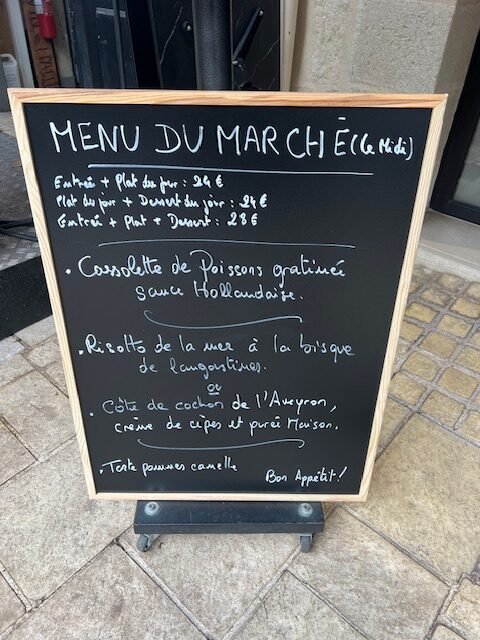 MENU DU MARCHÉ (Le Midi)
Entrée + Plat du jour : 24 €
Plat du jour + Dessert du jour : 24 €
Entrée + Plat + Dessert : 28 €
. Cassolette de Poissons gratinée
sauce Hollandaise.
. Risotto de la mer à la bisque
de langoustines.
ou
. Côte de cochon de l'Aveyron,
crème de cèpes et purée Maison.
. Tarte pommes cannelle
Bon Appétit !